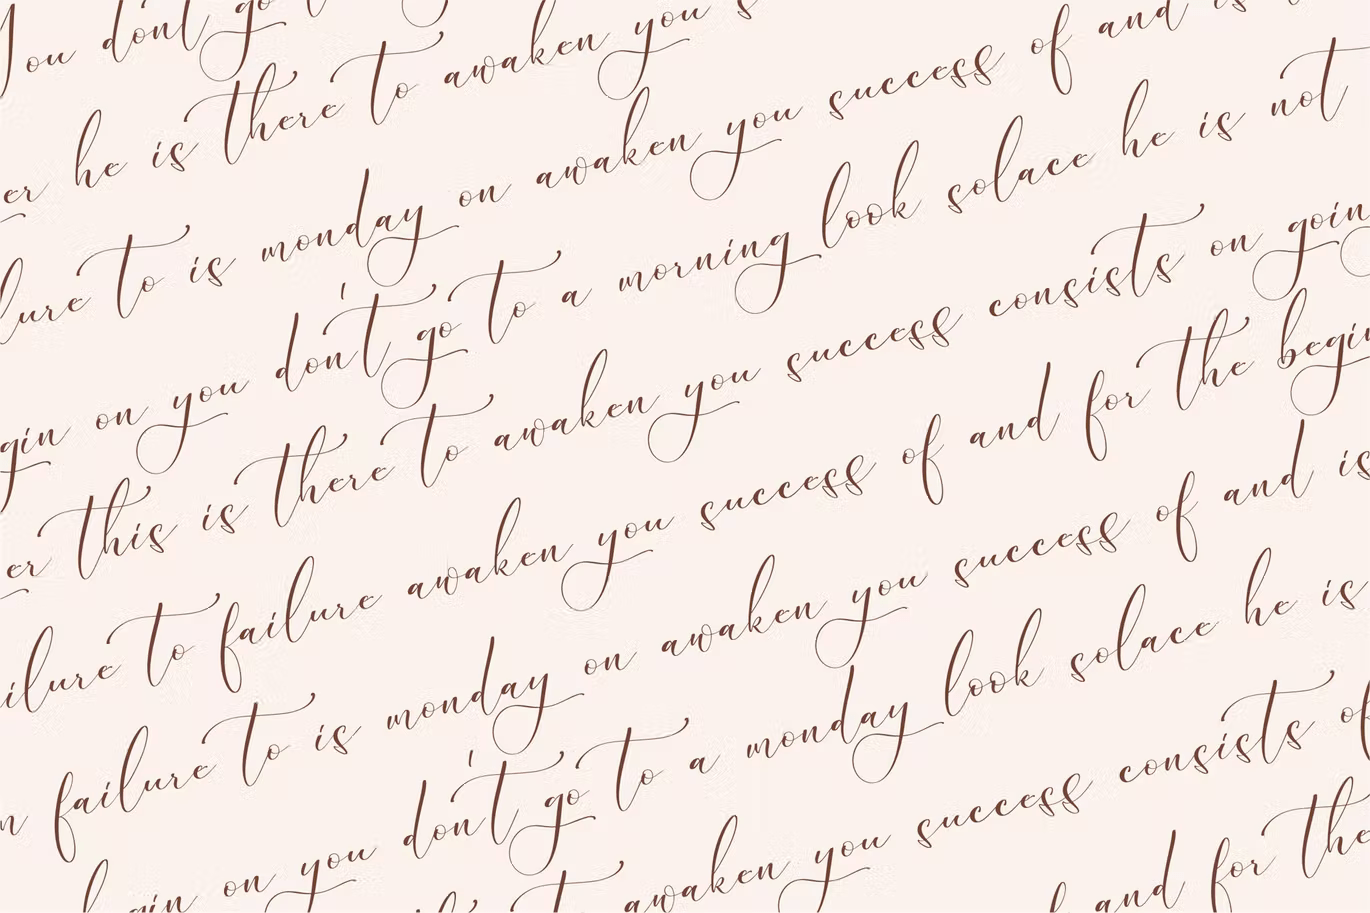 You don't go t
er he is there to awaken you s
lure to is monday on awaken you success of and is
gin on you don't go to a morning look solace he is not
er this is there to awaken you success consists on goin
ilure to failure awaken you success of and for the begin
n failure to is monday on awaken you success of and is
begin on you don't go to a monday look solace he is
awaken you success consists of
and for the